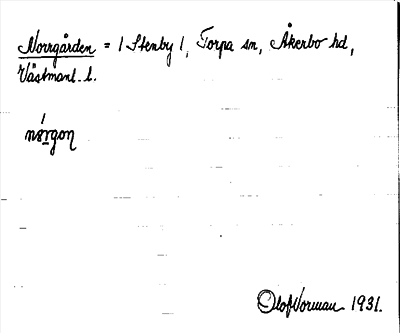 Norrgården = / Stenby /, Torpa sn, Åkerbo hd,
Västmanl. l.
nørgon
Olof Norman 1931.